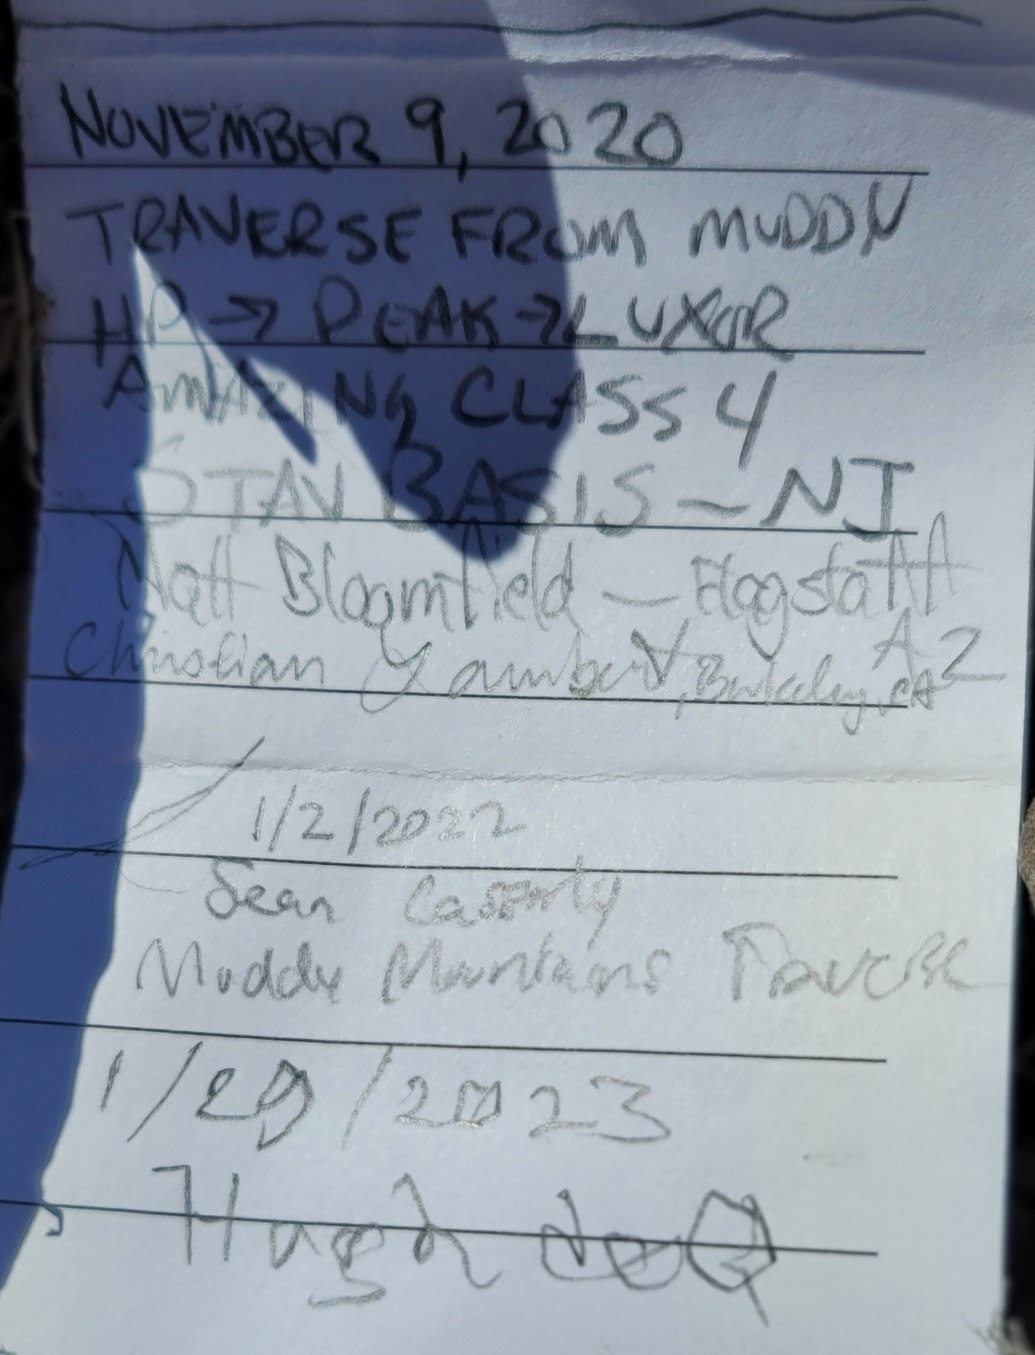 NOVEMBER 9, 2020
TRAVERSE FROM MUDDY
HP → PEAK → LUXOR
AMAZING CLASS 4
STAV BASIS - NJ
Matt Bloomfield - Flagstaff
AZ
Christian Yambert, Berkeley, CA
1/2/2022
Sean Casserly
Muddy Mountains Traverse
1/29/2023
Hugh deQ